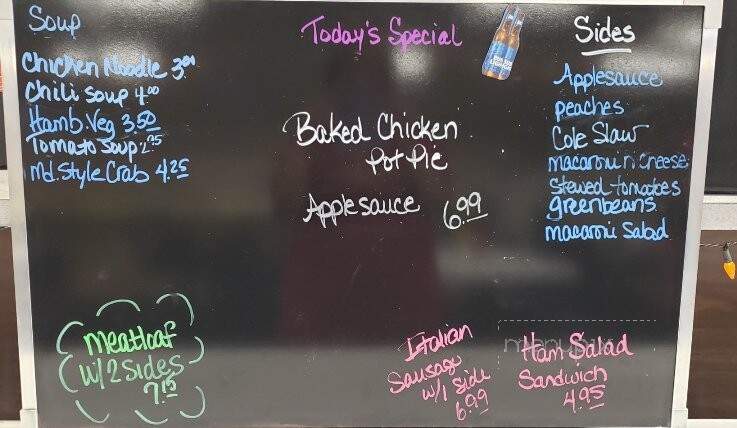 Soup
Chicken Noodle 3.00
Chili Soup 4.00
Hamb. Veg 3.50
Tomato Soup 2.95
Md. Style Crab 4.25
Today's Special
Baked Chicken
Pot Pie
Applesauce 6.99
Sides
Applesauce
peaches
Cole Slaw
macaroni n cheese
Stewed tomatoes
greenbeans
macaroni Salad
meatloaf
w/ 2 Sides
7.15
Italian
Sausage
w/ 1 side
6.99
Ham Salad
Sandwich
4.95